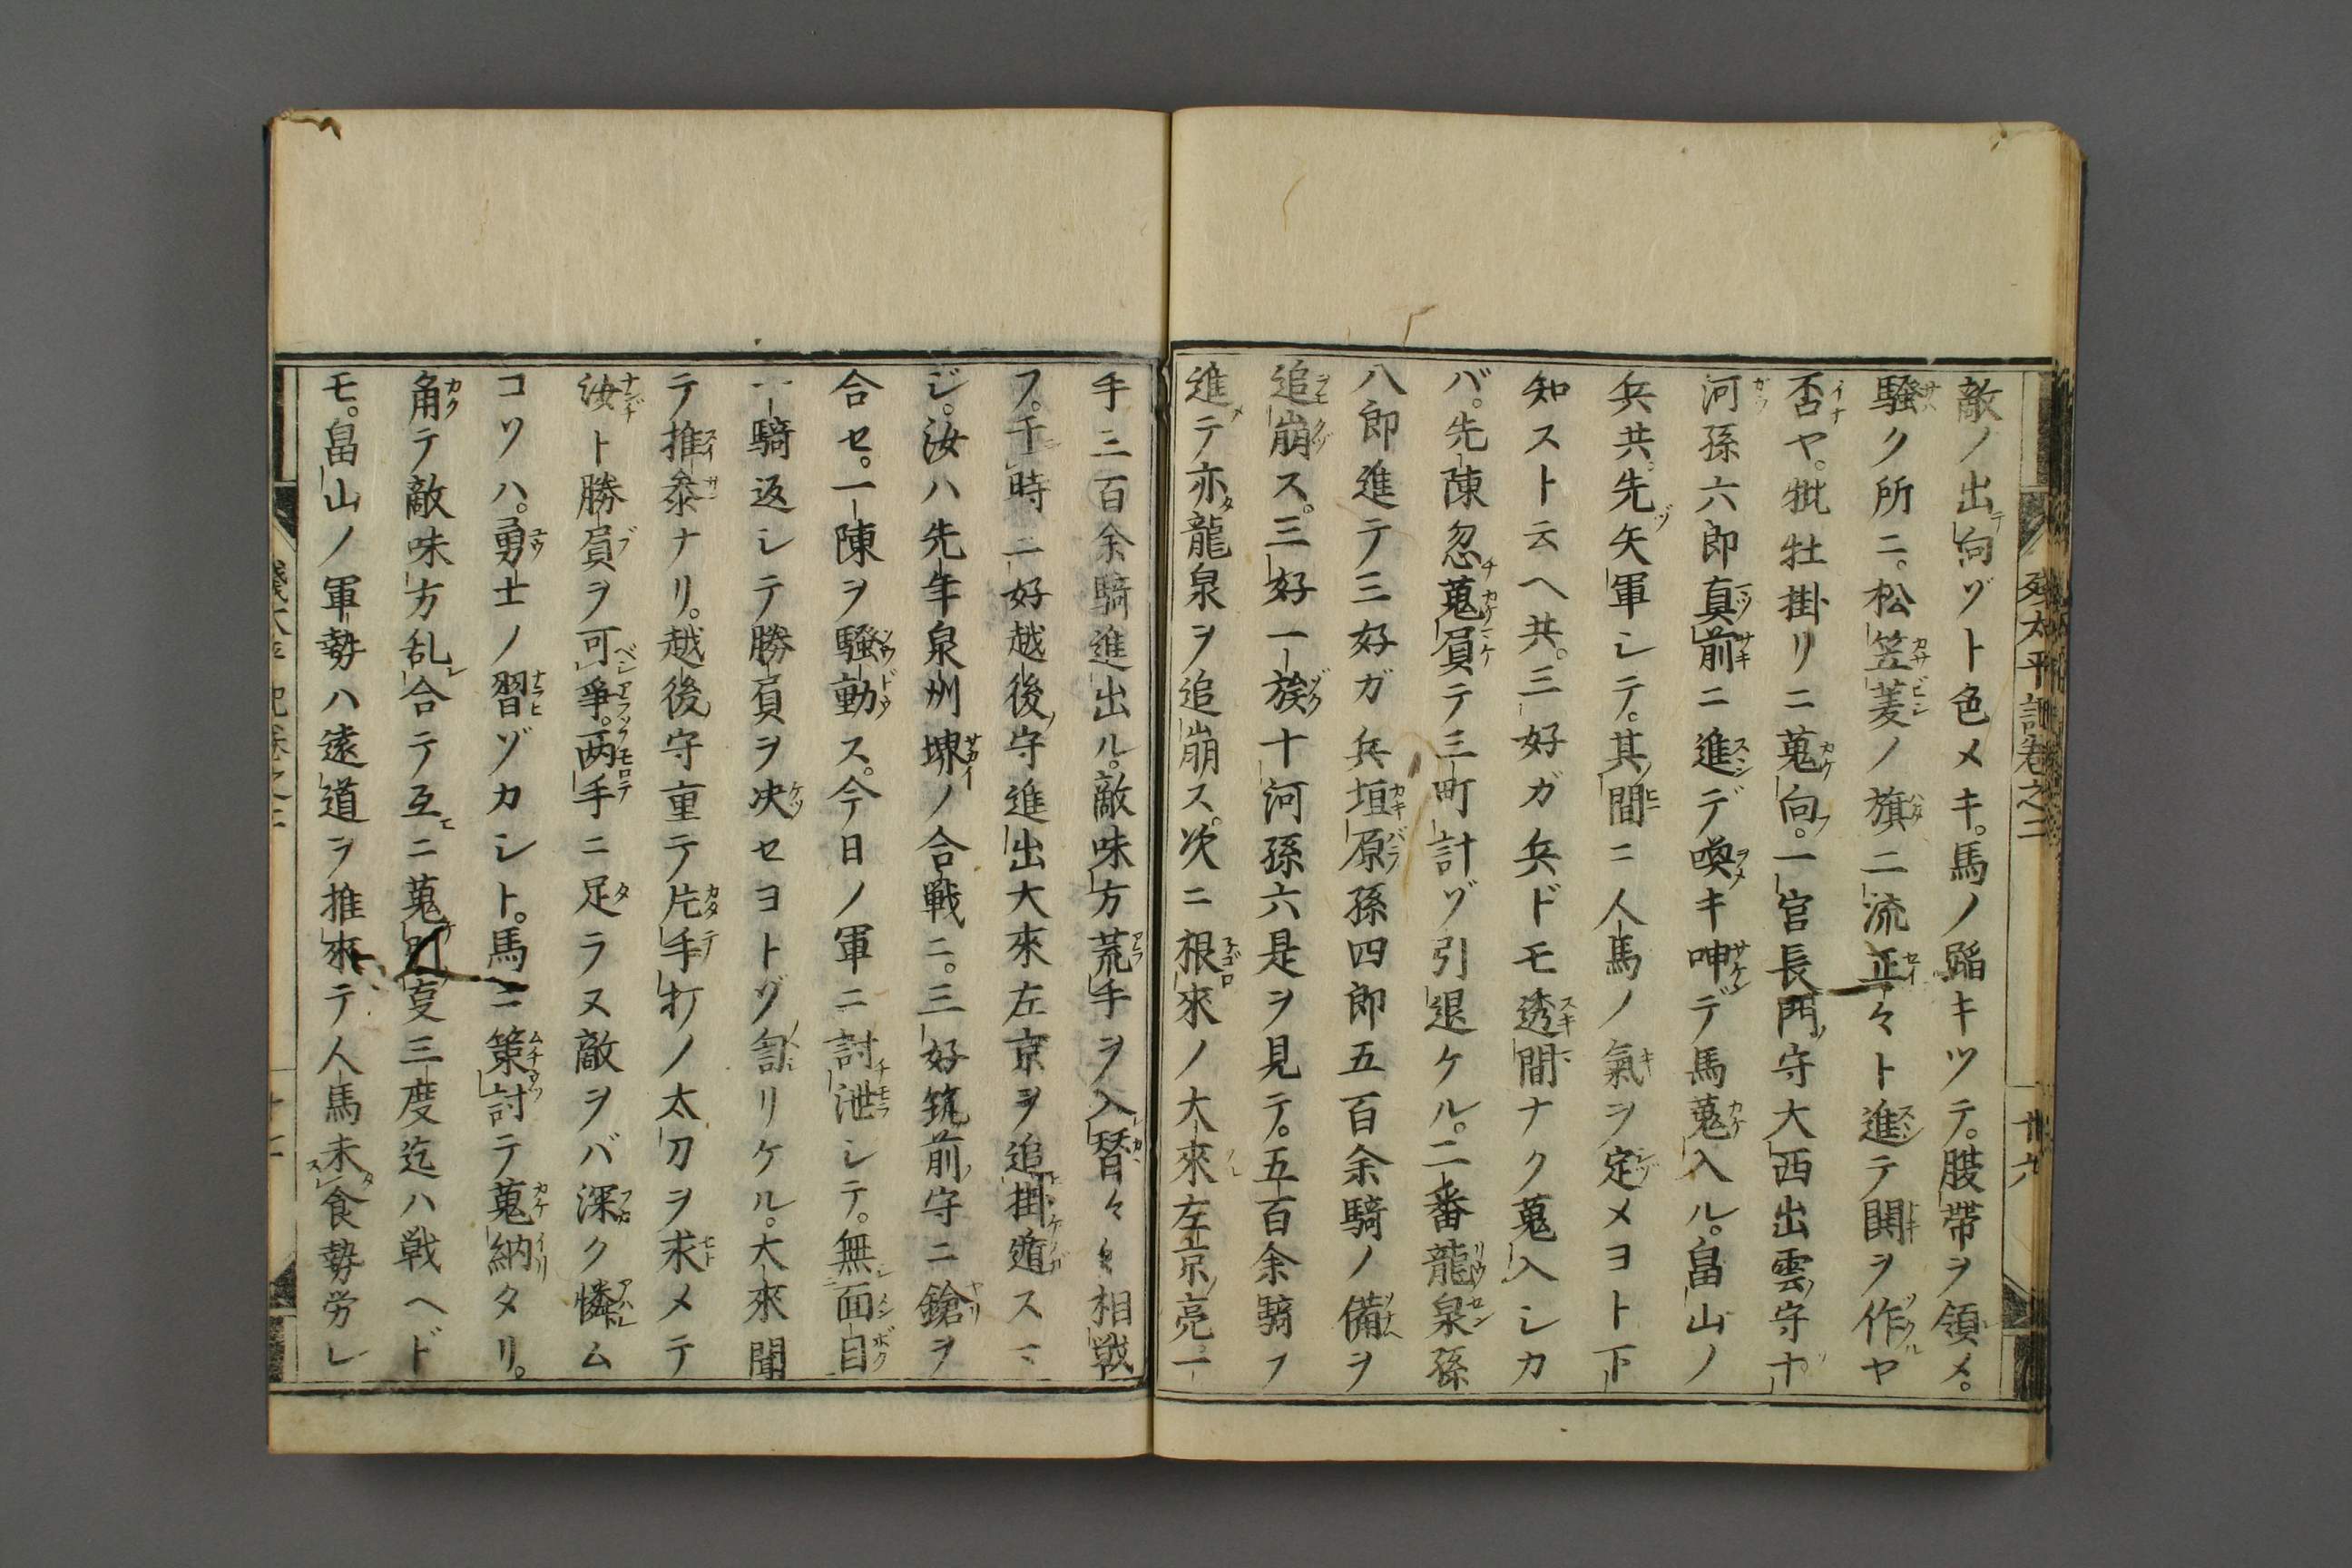 残太平記巻之二
廿六
敵ノ出向ヅト色メキ。馬ノ蹈キツテ。腰帯ヲ領メ。
騒ク所ニ。松笠菱ノ旗二流正々ト進テ鬨ヲ作ヤ
否ヤ。牡掛リニ蒐向。一宮長門守大西出雲守十
河孫六郎真前ニ進デ喚キ呻デ馬蒐入ル。畠山ノ
兵共先矢軍シテ。其間ニ人馬ノ氣ヲ定メヨト下
知スト云ヘ共。三好ガ兵ドモ透間ナク蒐入シカ
バ。先陳忽蒐負テ三町計ヅ引退ケル。二番龍泉孫
八郎進テ三好ガ兵垣原孫四郎五百余騎ノ備ヲ
追崩ス。三好一族十河孫六是ヲ見テ。五百余騎フ
進テ亦龍泉ヲ追崩ス。次ニ根來ノ大來左京亮一
手三百余騎進出ル。敵味方荒手ヲ入替々々相戦
フ。于時三好越後守進出大來左京ヲ追掛遁スマ
ジ。汝ハ先年泉州堺ノ合戦ニ。三好筑前守ニ鎗ヲ
合セ。一陳ヲ騒動ス。今日ノ軍ニ討泄シテ。無面目
一騎返シテ勝負ヲ决セヨトヅ訇リケル。大來聞
テ推参ナリ。越後守重テ片手打ノ太刀ヲ求メテ
汝ト勝負ヲ可爭。两手ニ足ラヌ敵ヲバ深ク憐ム
コソハ。勇士ノ習ヅカシト。馬ニ策討テ蒐納タリ。
角テ敵味方乱合テ互ニ蒐叓三度迄ハ戦ヘド
モ。畠山ノ軍勢ハ遠道ヲ推來テ人馬未食勢労レ